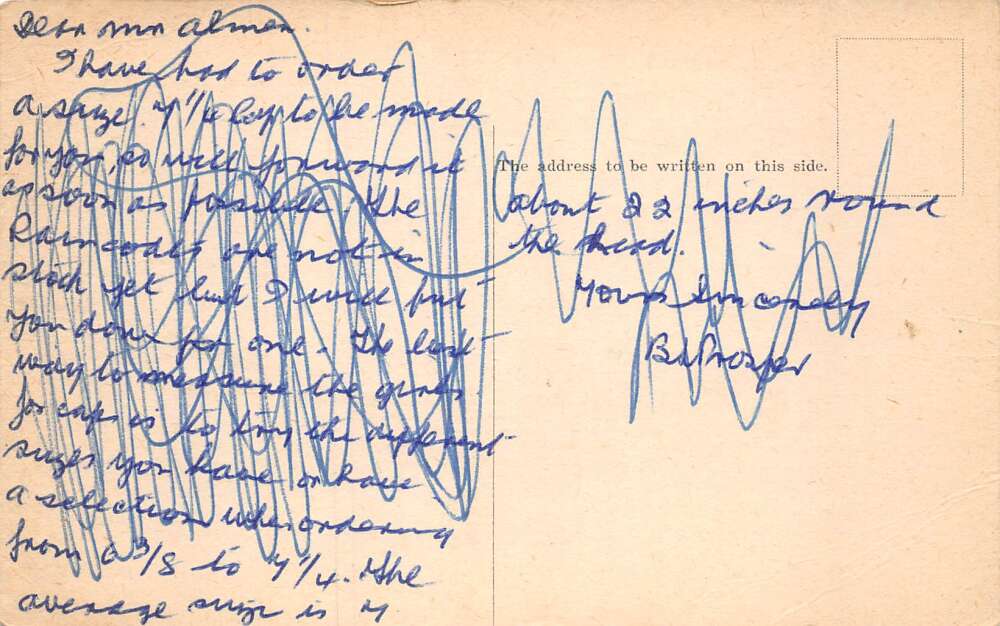 Dear Mr Almen.
I have had to order
a size 7 1/8 cap to be made
for you, so will forward it
as soon as possible. The
Raincoats are not in
stock yet but I will put
you down for one. The best
way to measure the girls
for caps is to try the different
sizes you have or have
a selection when ordering
from 6 3/8 to 7 1/4. The
average size is 7
The address to be written on this side.
about 22 inches round
the head.
Yours Sincerely
B. Prosper